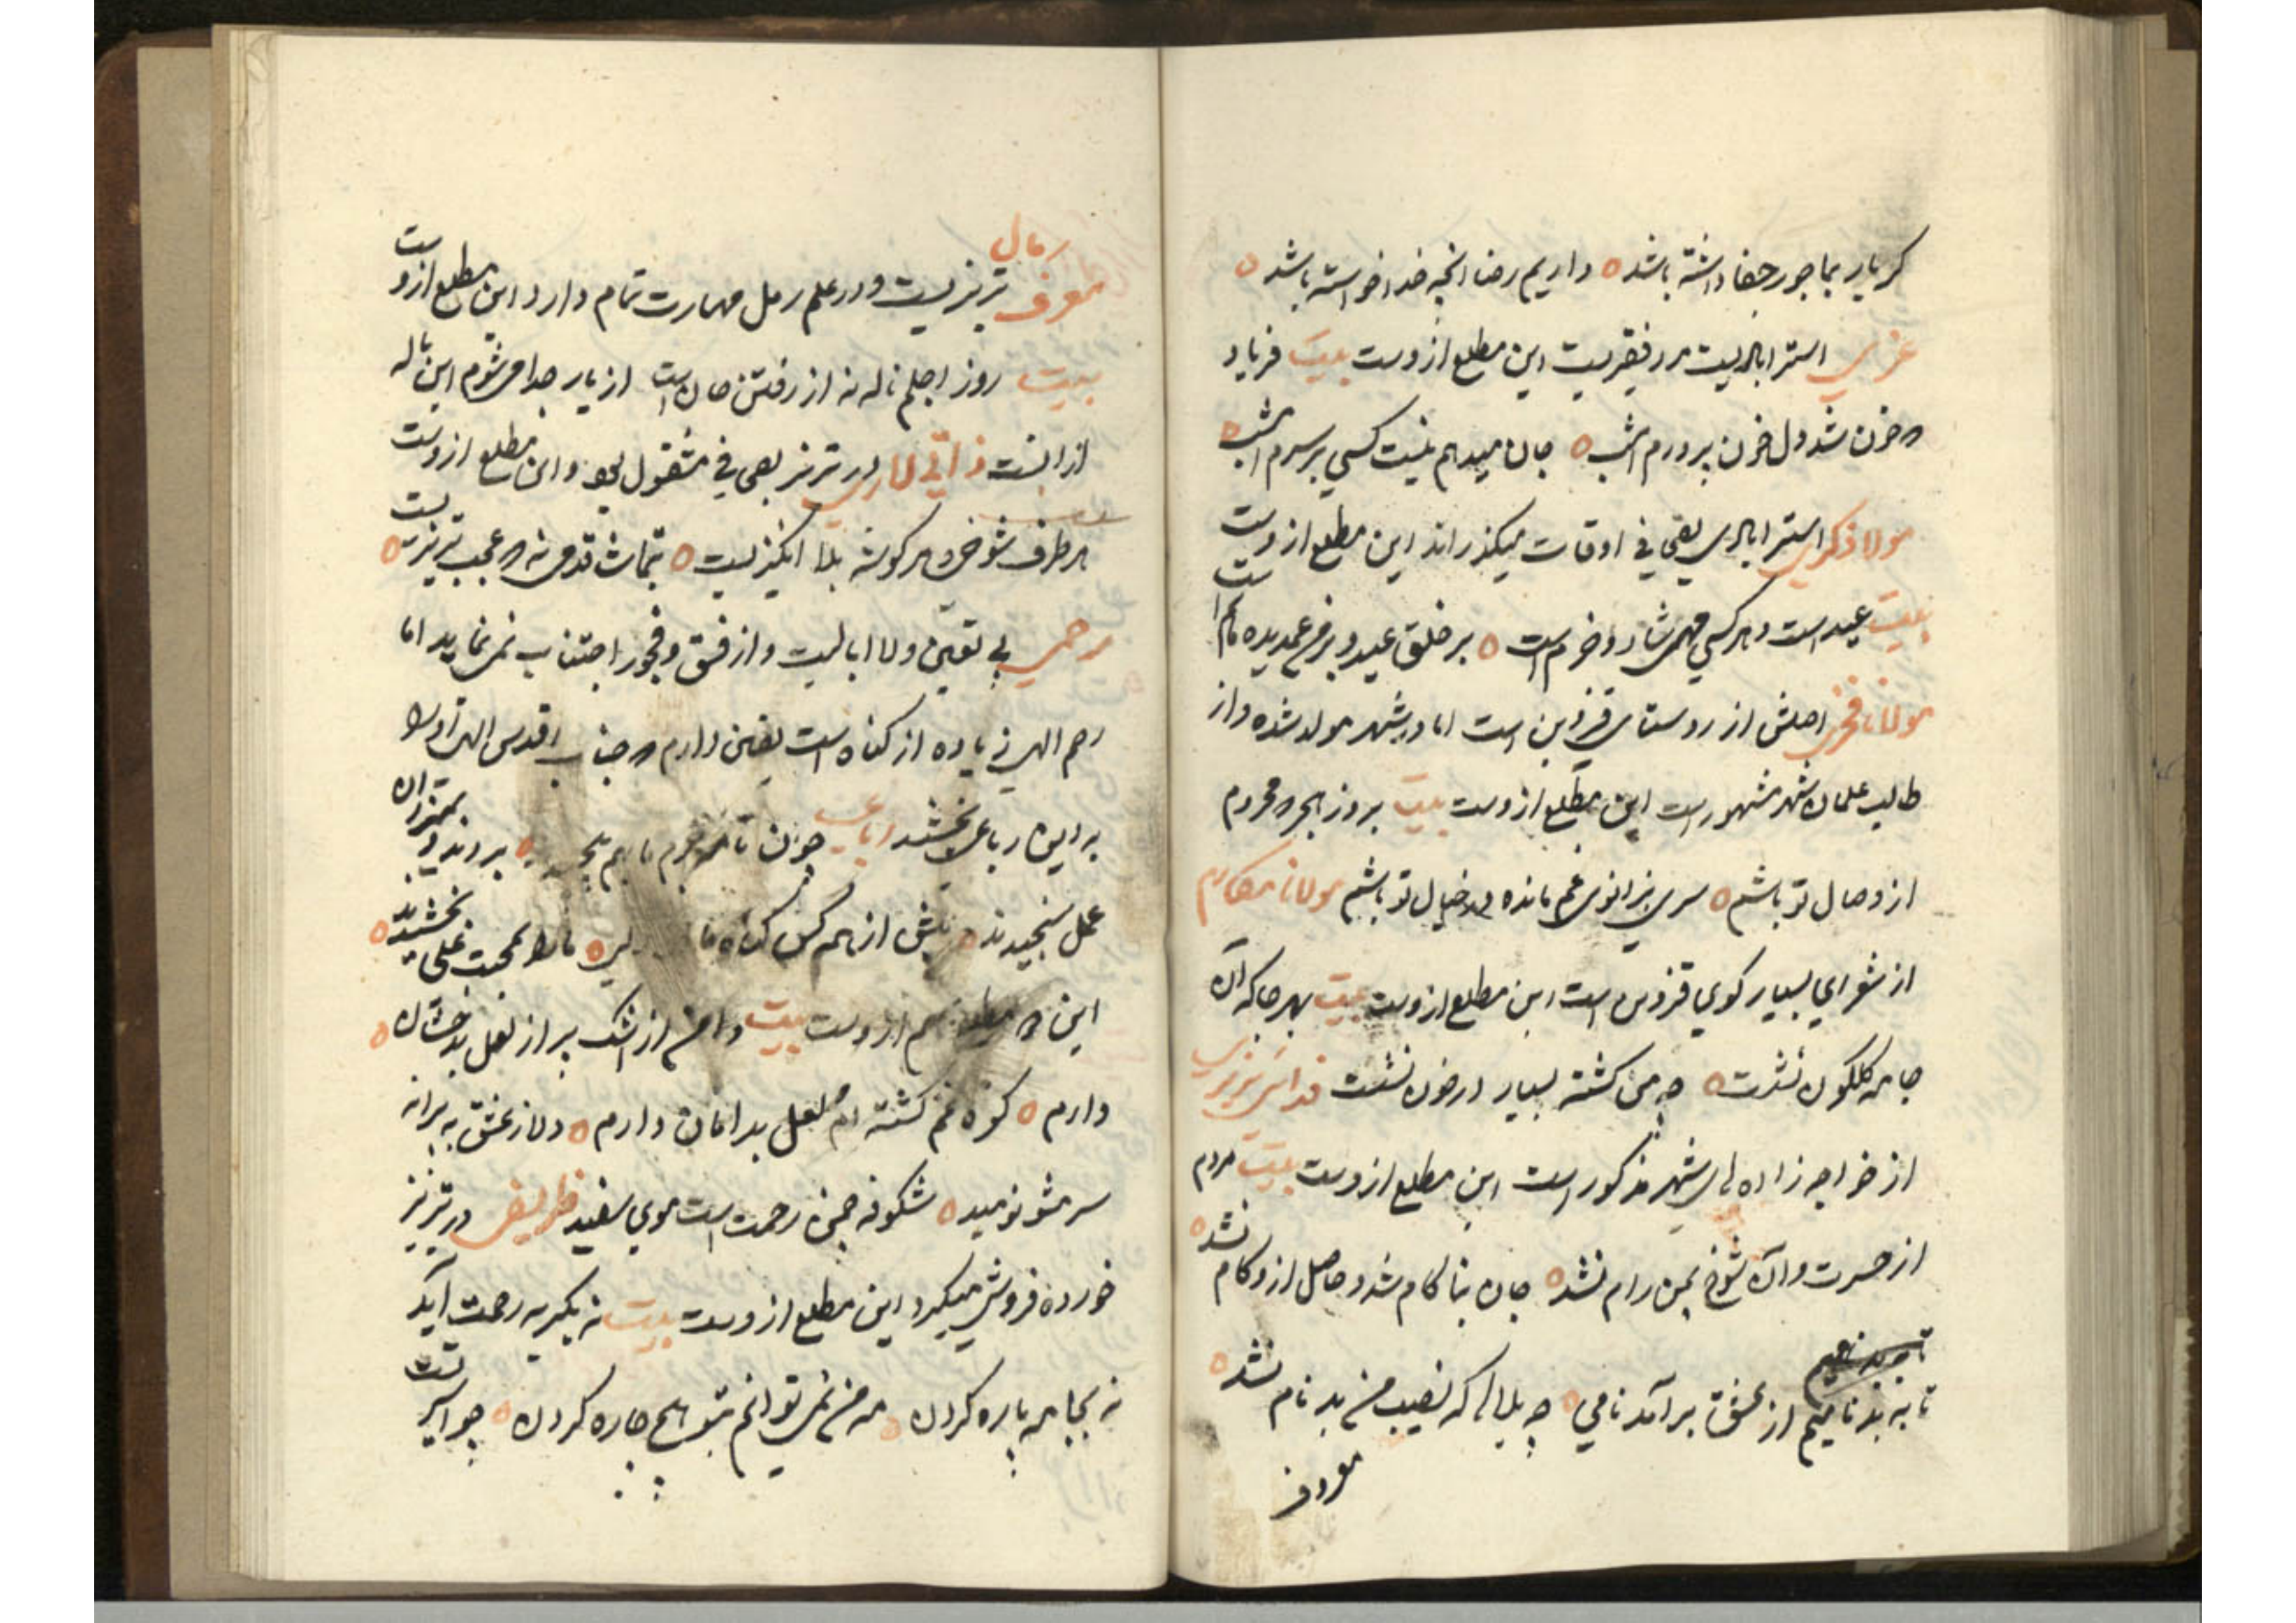 کر یار بما جور و جفا داشته باشد ه داریم رضا انچه خدا خواسته باشد ه
استرابادیست مرد فقیریست این مطلع از وست بیت فریاد
که خون شد دل خون پرورم امشب ه جان میدهم نیست کسی بر سرم امشب ه
مولا ذکری استرابادی بقی فی اوقات میکذراند این مطلع از وست
بیت عید است و هر کسی شاد و خرم است ه بر خلق عید و بر من غمدیده ماتم است
مولانا فخری اصلش از روستای قزوین است اما در شهر مولد شده و از
طالب علمان شهر مشهور است این مطلع از وست بیت بروز هجر که محروم
از وصال تو باشم ه سری بزانوی غم مانده در خیال تو باشم مولانا مکارم
از شعرای بسیار کوی قزوین است این مطلع از وست بیت بهر جا که آن
جامه کلکون نشست ه چه من کشته بسیار در خون نشست فدائی تبریزی
از خواجه زاده های شهر مذکور است این مطلع از وست بیت مردم
از حسرت و آن شوخ بمن رام نشد ه جان بناکام شد و حاصل ازو کام نشد ه
تا به بدنامیم از عشق بر آمد نامی ه چه بلاها که نصیب من بدنام نشد ه
معروف
رمال
معروف تبریزیست و در علم رمل مهارت تمام دارد این مطلع ازوست
بیت روز اجلم ناله نه از رفتن جان است از یار جدا می شوم این ناله
از انست در تبریز مشغول بود و این مطلع از وست
هر طرف شوخی و هر کوشه بلا انکیزیست ه تماشا قدمی نه که عجب تبریزیست ه
رحمی بی تعین و لا ابالیست و از فسق و فجور اجتناب نمی نماید اما
رحم الهی زیاده از کناه است یقین دارم که جناب اقدس الهی او را
به این رباعی بخشد رباعی چون نامه جرم ما بهم پیچیدند ه بردند و بمیزان
عمل سنجیدند ه بیش از همه کس کناه ما ه ما را بمحبت علی بخشیدند ه
این مطلع هم از وست بیت دامن از اشک پر از لعل بدخشان ه
دارم ه کوه غم کشته ام لعل بدامان دارم ه دلا ز عشق به پیرانه
سر مشو نومید ه شکوفه چمن رحمت است موی سفید ظریفی در تبریز
خورده فروشی میکرد این مطلع از وست بیت نه بکریه رحمت آید
نه بجامه پاره کردن ه چه من نمی توانم بتو هیچ چاره کردن ه چو اسیر تست